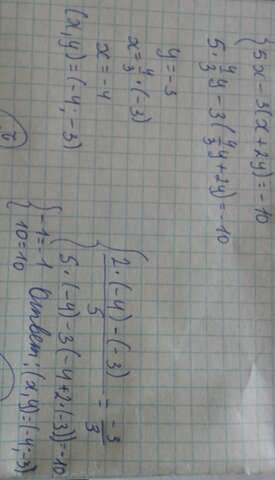 { 5x - 3(x + 2y) = -10
5 · 4/3 y - 3(4/3 y + 2y) = -10
y = -3
x = 4/3 · (-3)
x = -4
(x, y) = (-4, -3)
{ (2 · (-4) - (-3))/5 = -3/3
{ 5 · (-4) - 3(-4 + 2 · (-3)) = -10
{ -1 = -1
10 = 10 Ответ: (x, y) = (-4; -3)